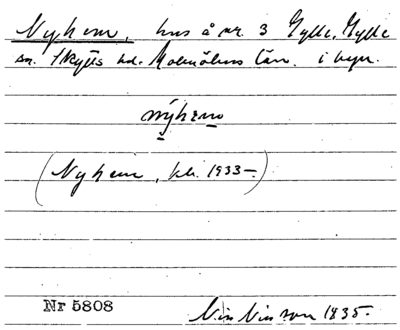 Nyhem, hus å nr. 3 Gylle, Gylle
sn. Skytts hd. Malmöhus län. i byn.
nyhem
(Nyhem, kli. 1933-)
Nr 5808
1935.